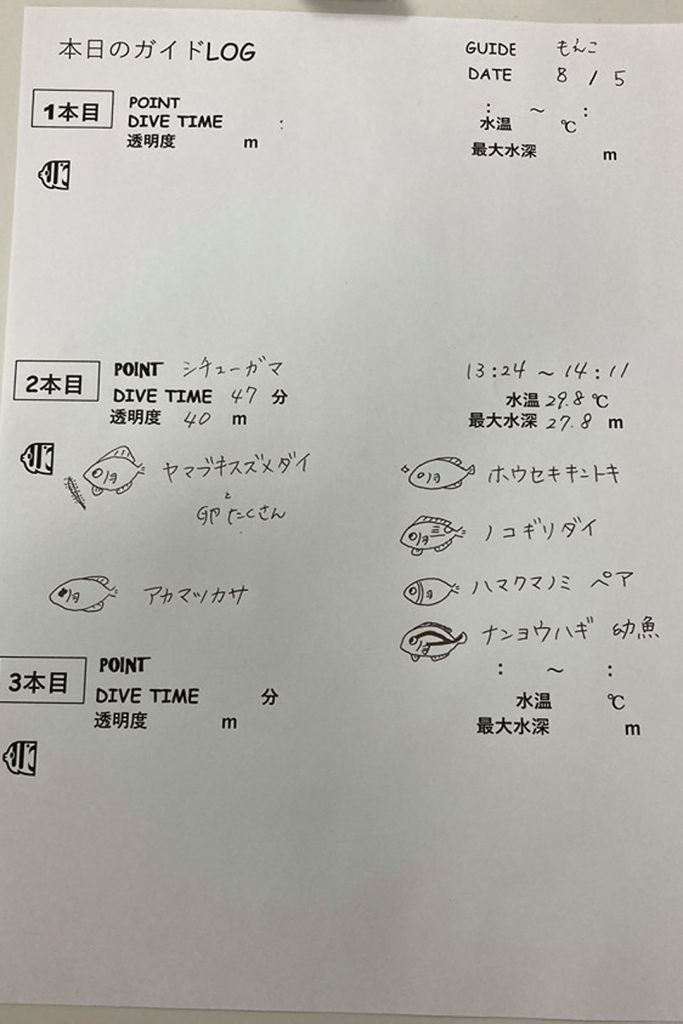 本日のガイドLOG
GUIDE もんこ
DATE 8 / 5
1本目
POINT
DIVE TIME :
: ~ :
透明度 m
水温 ℃
最大水深 m
2本目
POINT シチューガマ
13:24 ~ 14:11
DIVE TIME 47 分
水温 29.8 ℃
透明度 40 m
最大水深 27.8 m
ヤマブキスズメダイ
と
卵たくさん
ホウセキキントキ
ノコギリダイ
アカマツカサ
ハマクマノミ ペア
ナンヨウハギ 幼魚
3本目
POINT
: ~ :
DIVE TIME 分
水温 ℃
透明度 m
最大水深 m